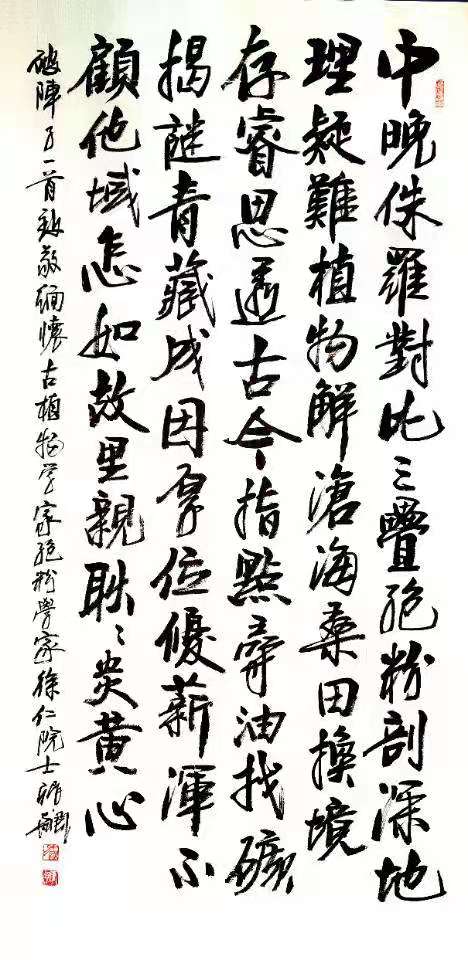 中晚侏羅對比三疊孢粉剖深地
理疑難植物解滄海桑田換境
存睿思透古今指點尋油找礦
揭謎青藏成因位優薪渾不
顧他域怎如故里親耿々炎黄心
破陣子一首致敬緬懷古植物学家孢粉學家徐仁院士